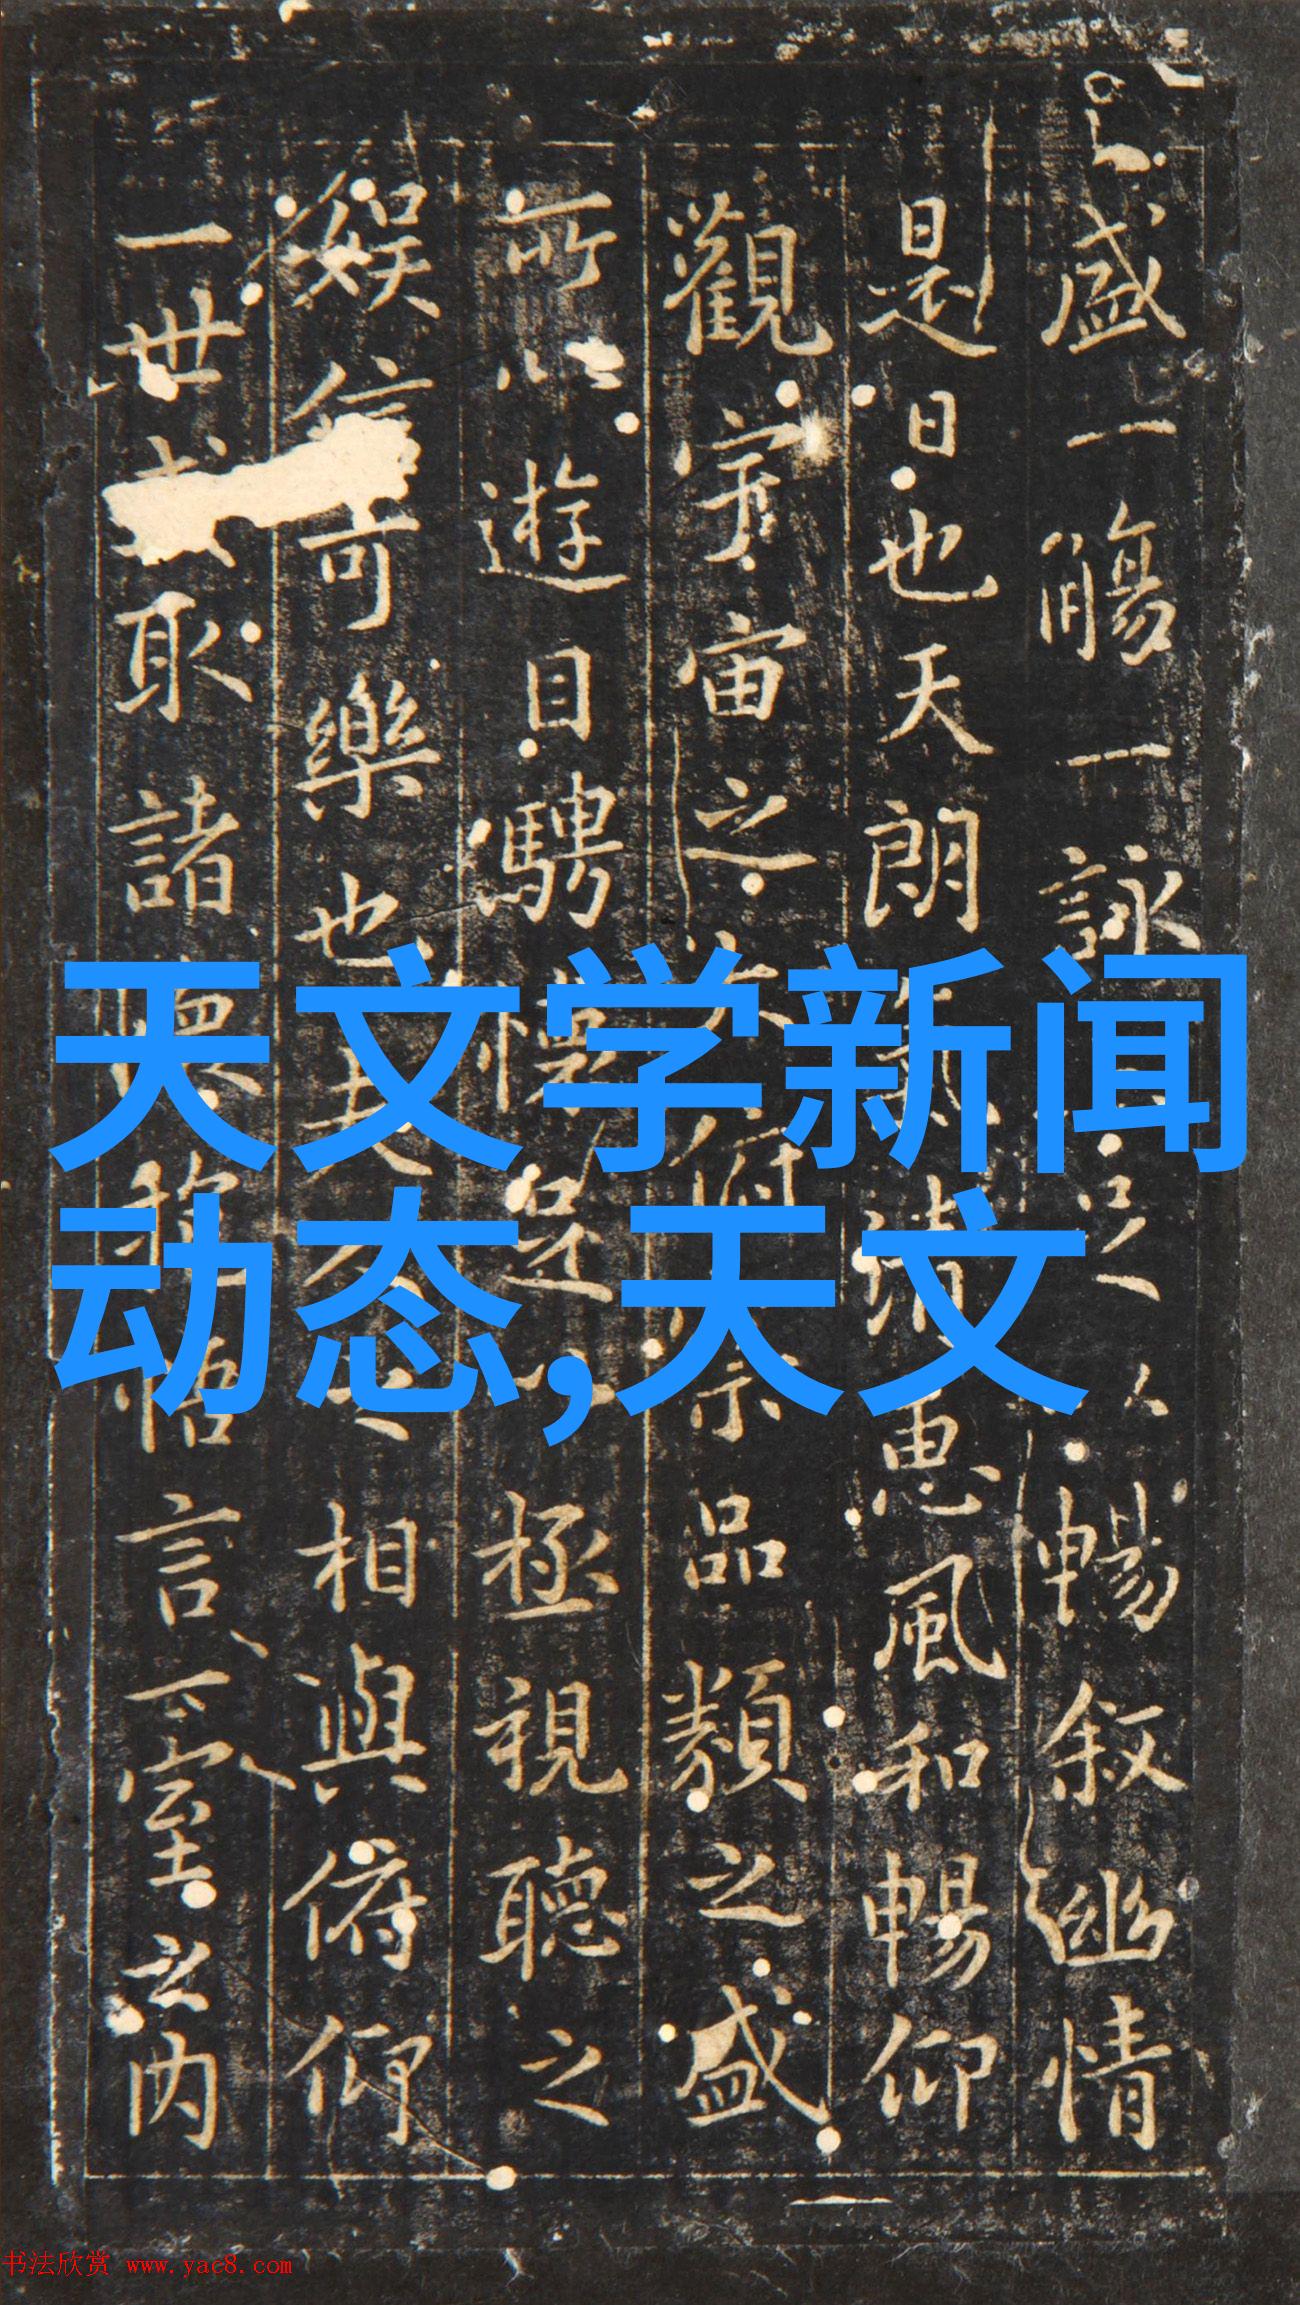 盛一觴一詠亦足以暢叙幽情
是日也天朗氣清惠風和暢仰
觀宇宙之大俯察品類之盛
所以遊目騁懷足以極視聽之
娱信可樂也夫人之相與俯仰
一世或取諸懷抱悟言一室之内
天文学新闻
动态,天文
书法欣赏 www.yac8.com